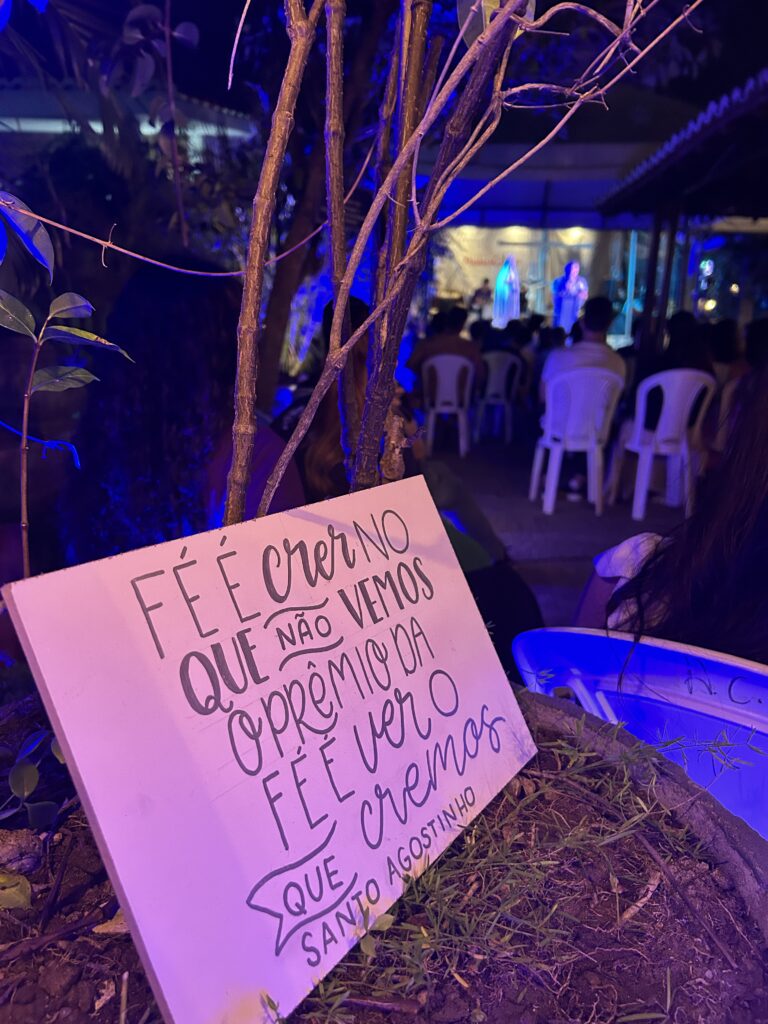 FÉ É crer NO
QUE NÃO VEMOS
O PRÊMIO DA
FÉ É ver O
QUE cremos
SANTO AGOSTINHO
H.C.